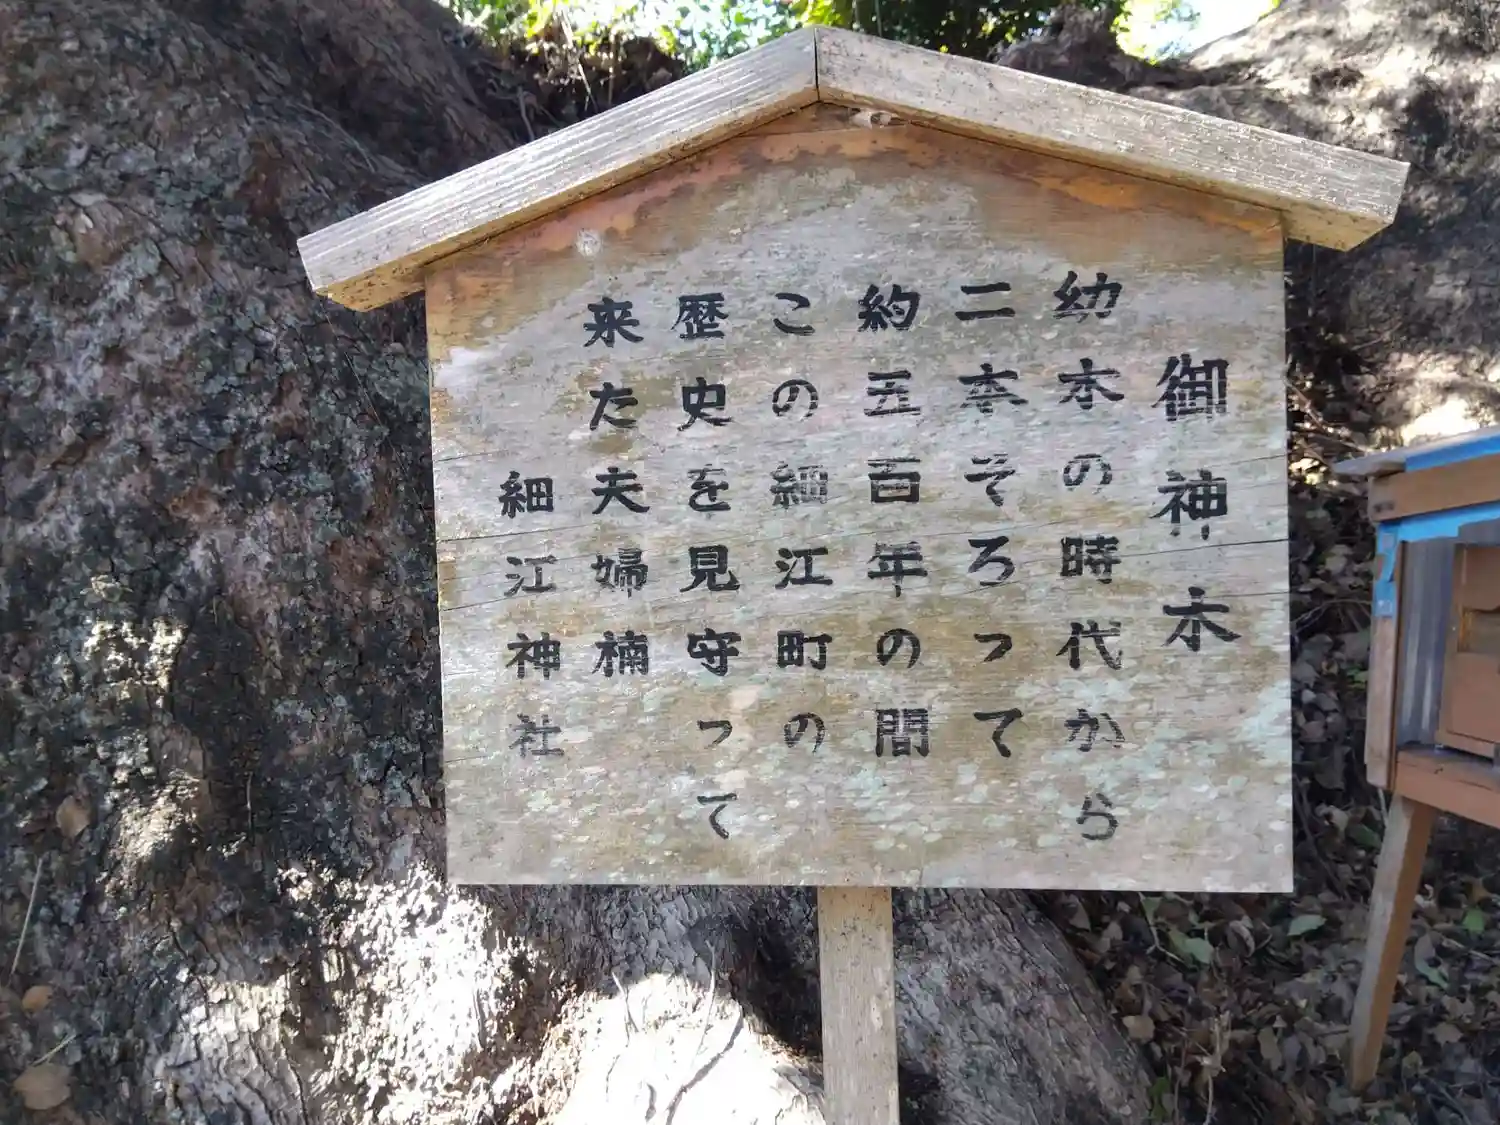 御神木
幼木の時代から
二本そろって
約五百年の間
この細江町の
歴史を見守って
来た夫婦楠
細江神社